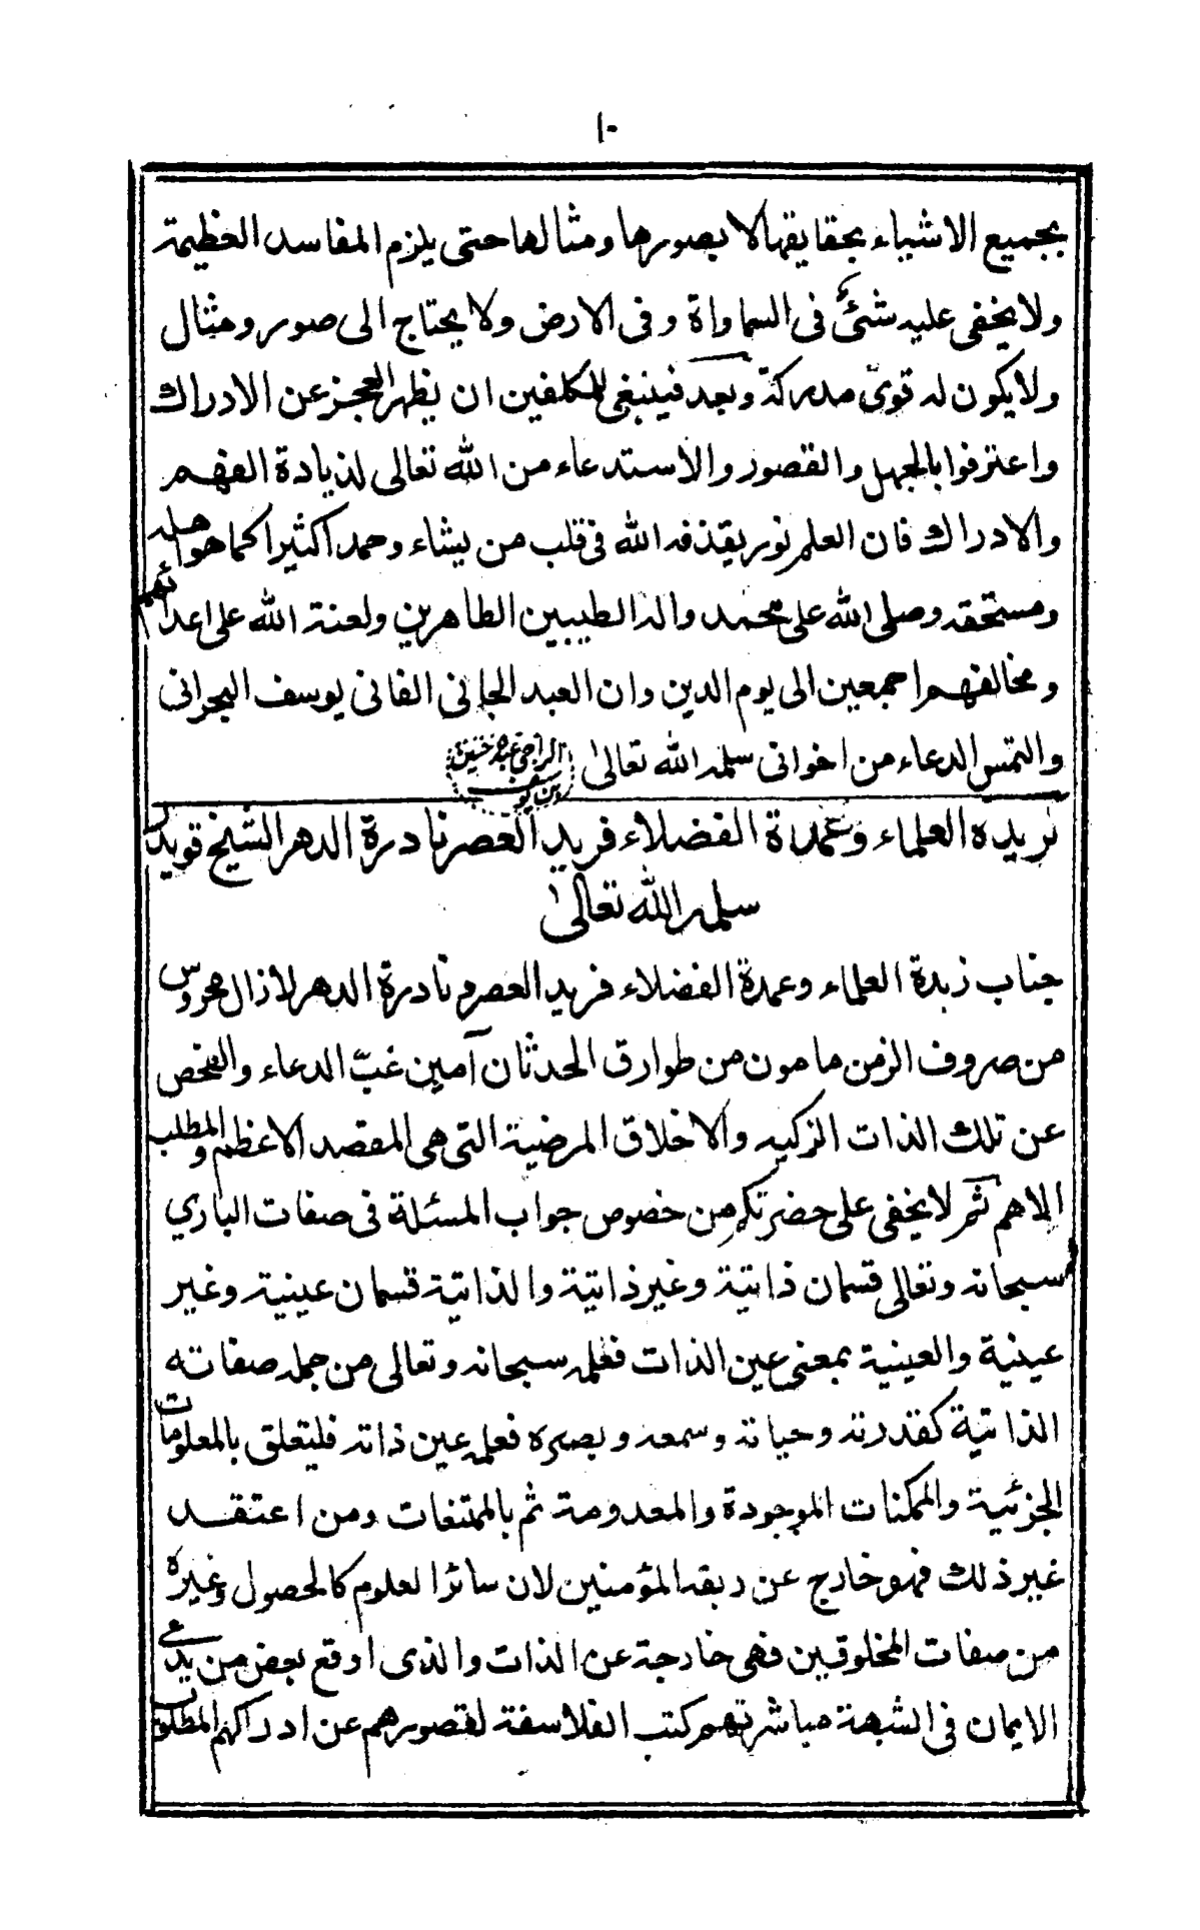 ١٠
بجميع الاشياء بحقايقها لا بصورها ومثالها حتى يلزم المفاسد العظيمة
ولا يخفى عليه شئ فى السماواة وفى الارض ولا يحتاج الى صور ومثال
ولا يكون له قوىً مدركة وبعد فينبغى للمكلفين ان يظهر العجز عن الادراك
واعترفوا بالجهل والقصور والاستدعاء من الله تعالى لذيادة الفهم
والادراك فان العلم نور يقذفه الله فى قلب من يشاء وحمدا كثيرا كما هو اهله
ومستحقه وصلى الله على محمد واله الطيبين الطاهرين ولعنة الله على اعدائهم
ومخالفهم اجمعين الى يوم الدين وان العبد الجانى الفانى يوسف البحرانى
والتمس الدعاء من اخوانى سلمه الله تعالىٰ
زبده العلماء وعمداة الفضلاء فريد العصر نادرة الدهر الشيخ
سلمه الله تعالىٰ
جناب زبدة العلماء وعمدة الفضلاء فريد العصر و نادرة الدهر لا زال محروس
من صروف الزمن مامون من طوارق الحدثان آمين غبّ الدعاء والفحص
عن تلك الذات الزكيه والاخلاق المرضية التى هى المقصد الاعظم والمطلب
الاهم ثم لا يخفى على حضرتكم من خصوص جواب المسئلة فى صفات الباري
سبحانه وتعالى قسمان ذاتية وغير ذاتية والذاتية قسمان عينية وغير
عينية والعينية بمعنى عين الذات فعلمه سبحانه وتعالى من جمله صفاته
الذاتية كقدرته وحياته وسمعه وبصره فعلمه عين ذاته فليتعلق بالمعلومات
الجزئية والممكنات الموجودة والمعدومة ثم بالممتنعات ومن اعتقد
غير ذلك فهو خارج عن ربقه المؤمنين لان سائر العلوم كالحصول وغيره
من صفات المخلوقين فهى خارجة عن الذات والذى اوقع بعض من يدعى
الايمان فى الشبهة مباشرتهم كتب الفلاسفة لقصورهم عن ادراكهم المطلوب